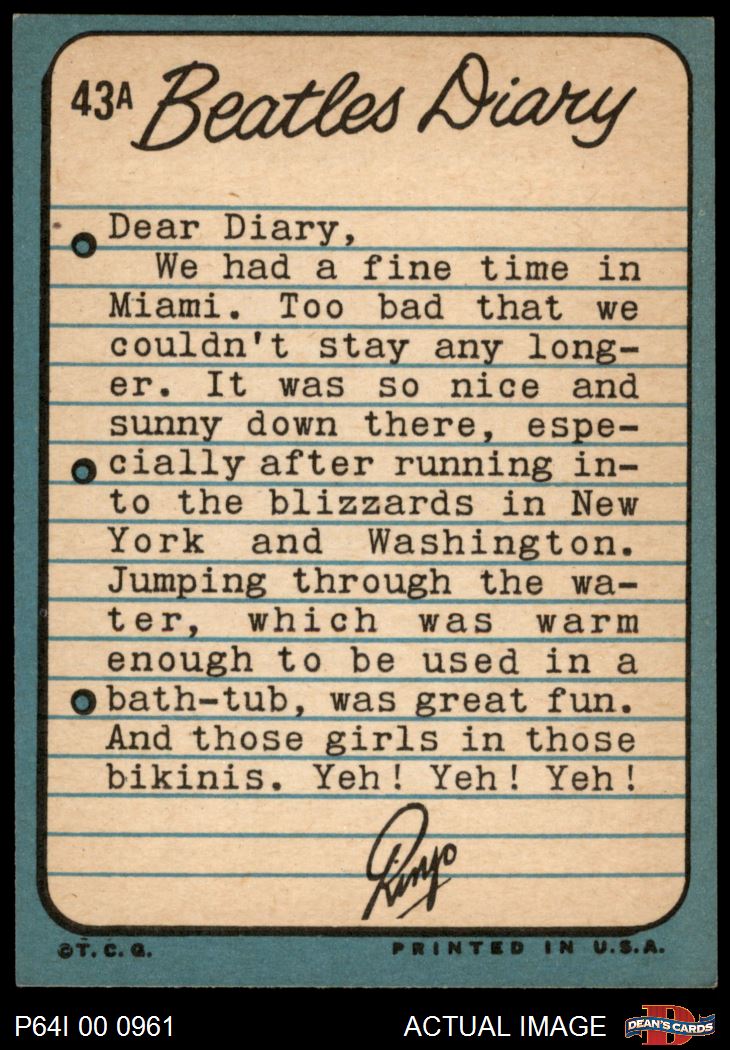 43A Beatles Diary
Dear Diary,
We had a fine time in
Miami. Too bad that we
couldn't stay any long-
er. It was so nice and
sunny down there, espe-
cially after running in-
to the blizzards in New
York and Washington.
Jumping through the wa-
ter, which was warm
enough to be used in a
bath-tub, was great fun.
And those girls in those
bikinis. Yeh! Yeh! Yeh!
Ringo
©T.C.G. PRINTED IN U.S.A.
P64I 00 0961 ACTUAL IMAGE D DEAN'S CARDS